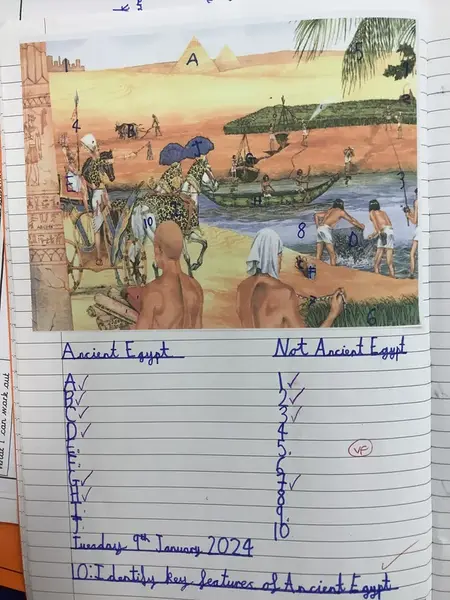 1 A 5
4 B
J
3
H
10 8 D
7 6
Ancient Egypt Not Ancient Egypt
A✓ 1✓
B✓ 2✓
C✓ 3✓
D✓ 4
E 5
VF
F 6
G✓ 7✓
H✓ 8
I 9
J 10
Tuesday 9th January 2024
LO:Identify key features of Ancient Egypt
I can work out